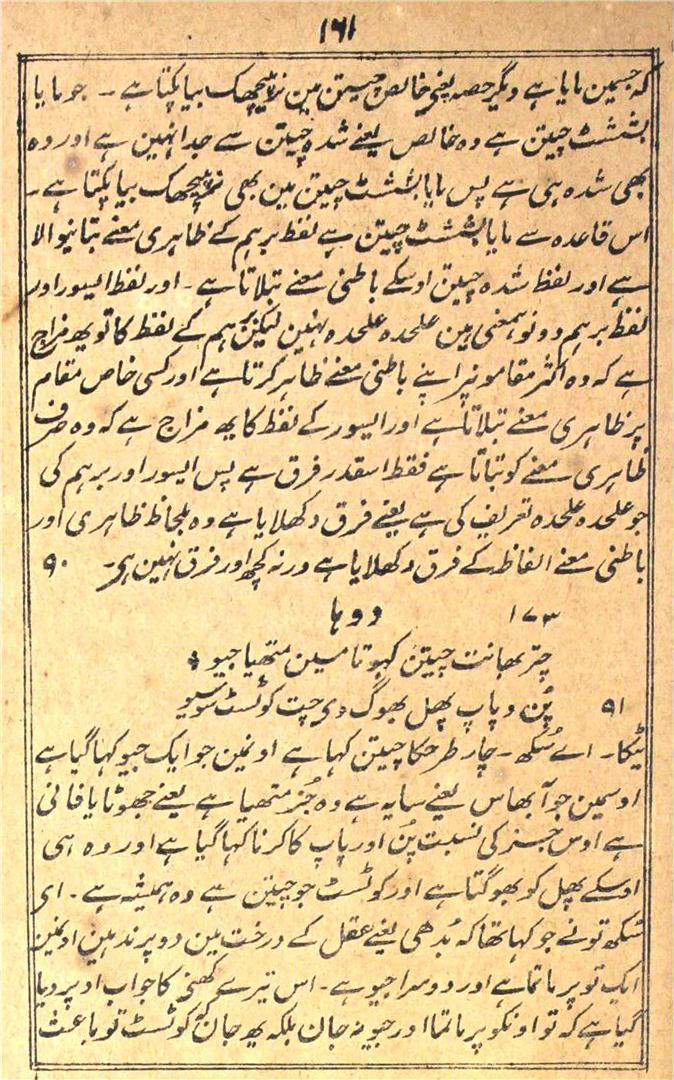 ۱۶۱
کہ جسمین مایا ہے ویگر حصہ یعنی خالص چیتن مین نرپیچھک بیاپکتا ہے ۔ جو مایا
بششٹ چیتن ہے وہ خالص یعنے شدہ چیتن سے جدا نہین ہے اور وہ
بھی شدہ ہی ہے پس مایا بششٹ چیتن مین بھی نرپیچھک بیاپکتا ہے ۔
اس قاعدہ سے مایا بششٹ چیتن ہے لفظ برہم کے ظاہری معنے بتانیوالا
ہے اور لفظ شدہ چیتن اوسکے باطنی معنے بتلاتا ہے ۔ اور لفظ ایسور اور
لفظ برہم دونو ہمعنی ہین علحدہ علحدہ نہین لیکن برہم کے لفظ کا تو یھ مزاج
ہے کہ وہ اکثر مقامونپر اپنے باطنی معنے ظاہر کرتا ہے اور کسی خاص مقام
پر ظاہری معنے بتلاتا ہے اور ایسور کے لفظ کا یھ مزاج ہے کہ وہ صرف
ظاہری معنے کو بتاتا ہے فقط اسقدر فرق ہے پس ایسور اور برہم کی
جو علحدہ علحدہ تعریف کی ہے یعنے فرق دکھلایا ہے وہ بلحاظ ظاہری اور
باطنی معنے الفاظ کے فرق دکھلایا ہے ورنہ کچھ اور فرق نہین ہی۔ ۹۰
۱۷۳ دوہا
چتر بھانت چیتن کہیو تا مین متھیا جیو ٭
۹۱ پُن و پاپ پھل بھوگ دی چت کوٹسٹ سو سیو
ٹیکا ۔ اے سُکھ ۔ چار طرحکا چیتن کہا ہے اونمین جو ایک جیو کہا گیا ہے
اوسمین جو آبھاس یعنے سایہ ہے وہ جُز متھیا ہے یعنے جھوٹا یا فانی
ہے اوس جسز کی نسبت پُن اور پاپ کا کرنا کہا گیا ہے اور وہ ہی
اوسکے پھل کو بھوگتا ہے اور کوٹسٹ جو چیتن ہے وہ ہمیشہ ہے ۔ ای
سُکھ تونے جو کہا تھا کہ بُدھی یعنے عقل کے درخت مین دو پرند ہین اونمین
ایک تو پرماتما ہے اور دوسرا جیو ہے ۔ اس تیرے کھنی کا جواب اوپر دیا
گیا ہے کہ تو اونکو پرماتما اور جیو نہ جان بلکہ یھ جان کہ کوٹسٹ تو باعث